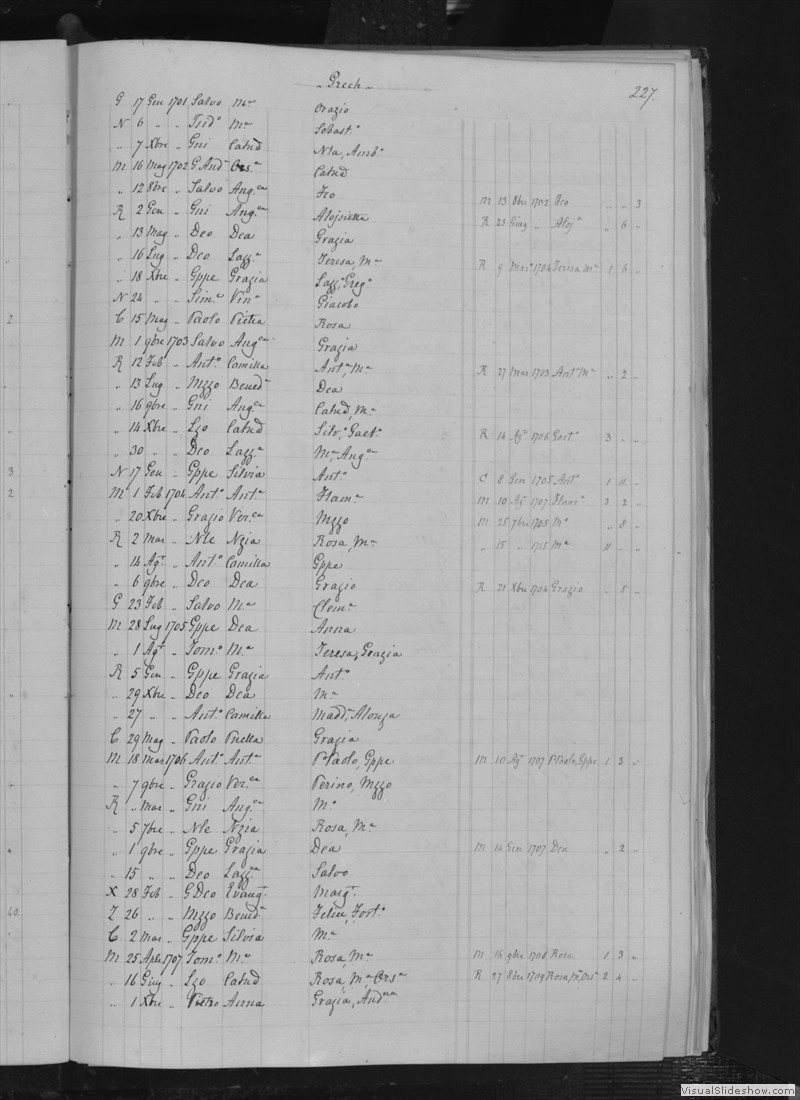 - Grech - 227.
G 17 Gen 1701 Salvo Mª Orazio
N 6 " " Frd.º Mª Sebast.º
" 7 Xbre " Gni Catnd Nla, Amb.ª
M 16 Mag 1702 G And.ª Ors.ª Catnd
" 12 8bre " Salvo Ang.ca Fco M 13 8bre 1702 Fco " " 3
R 2 Gen " Gni Ang.ca Alojsietta R 25 Giug " Aloj.ª " 6 "
" 13 Mag " Deo Dea Grazia
" 16 Lug " Deo Lazz.ª Teresa, Mª R 9 Mar.º 1704 Teresa Mª 1 6 "
" 18 Xbre " Gppe Grazia Lazz.º Greg.º
N 24 " " Sim.e Vin.ª Giacobo
2 C 15 Mag " Paolo Pietra Rosa
M 1 9bre 1703 Salvo Ang.ca Grazia
R 12 Feb " Ant.º Camilla Ant.ª, Mª R 27 Mar 1703 Ant.ª Mª " 2 "
" 13 Lug " Mzzo Bened.ª Dea
" 16 9bre " Gni Ang.ca Catnd, Mª
" 14 Xbre " Lzo Catnd Silv.º, Gaet.º R 14 Ag.º 1706 Gaet.º 3 " "
" 30 " " Deo Lazz.ª Mª, Ang.ca
3 N 17 Gen " Gppe Silvia Ant.º C 8 Gen 1705 Ant.º 1 11 "
2 M 1 Feb 1704 Ant.º Ant.ª Flam.ª M 10 Ag.º 1707 Flam.ª 3 2 "
" 20 Xbre " Grazio Ver.ca Mzzo M 25 7bre 1705 M.º " 8 "
R 2 Mar " Nle Nzia Rosa, Mª " 15 " 1715 Mª 11 " "
" 14 Ag.t " Ant.º Camilla Gppe
" 6 9bre " Deo Dea Grazio R 21 Xbre 1704 Grazio " 5 "
G 23 Feb " Salvo Mª Clem.ª
M 28 Lug 1705 Gppe Dea Anna
" 1 Ag.t " Tom.º Mª Teresa, Grazia
R 5 Gen " Gppe Grazia Ant.º
" 29 Xbre " Deo Dea Mª
" 27 " " Ant.º Camilla Madd.ª, Alonza
C 29 Mag " Paolo Pietra Grazia
M 18 Mar 1706 Ant.º Ant.ª P Paolo, Gppe M 10 Ag.º 1707 P Paolo, Gppe 1 3 "
" 7 9bre " Grazio Ver.ca Perino, Mzzo
R " Mar " Gni Ang.ca Mª
" 5 7bre " Nle Nzia Rosa, Mª
" 1 9bre " Gppe Grazia Dea M 14 Gen 1707 Dea " 2 "
" 15 " " Deo Lazz.ª Salvo
X 28 Feb " G Deo Evang.ª Marg.ª
40 Z 26 " " Mzzo Bened.ª Felice, Fort.º
C 2 Mar " Gppe Silvia Mª
M 25 Aple 1707 Tom.º Mª Rosa, Mª M 16 9bre 1708 Rosa 1 3 "
" 16 Giug " Lzo Catnd Rosa, Mª, Ors.ª R 27 8bre 1709 Rosa, Mª, Ors.ª 2 4 "
" 1 Xbre " Pietro Anna Grazia, And.na
VisualSlideshow.com